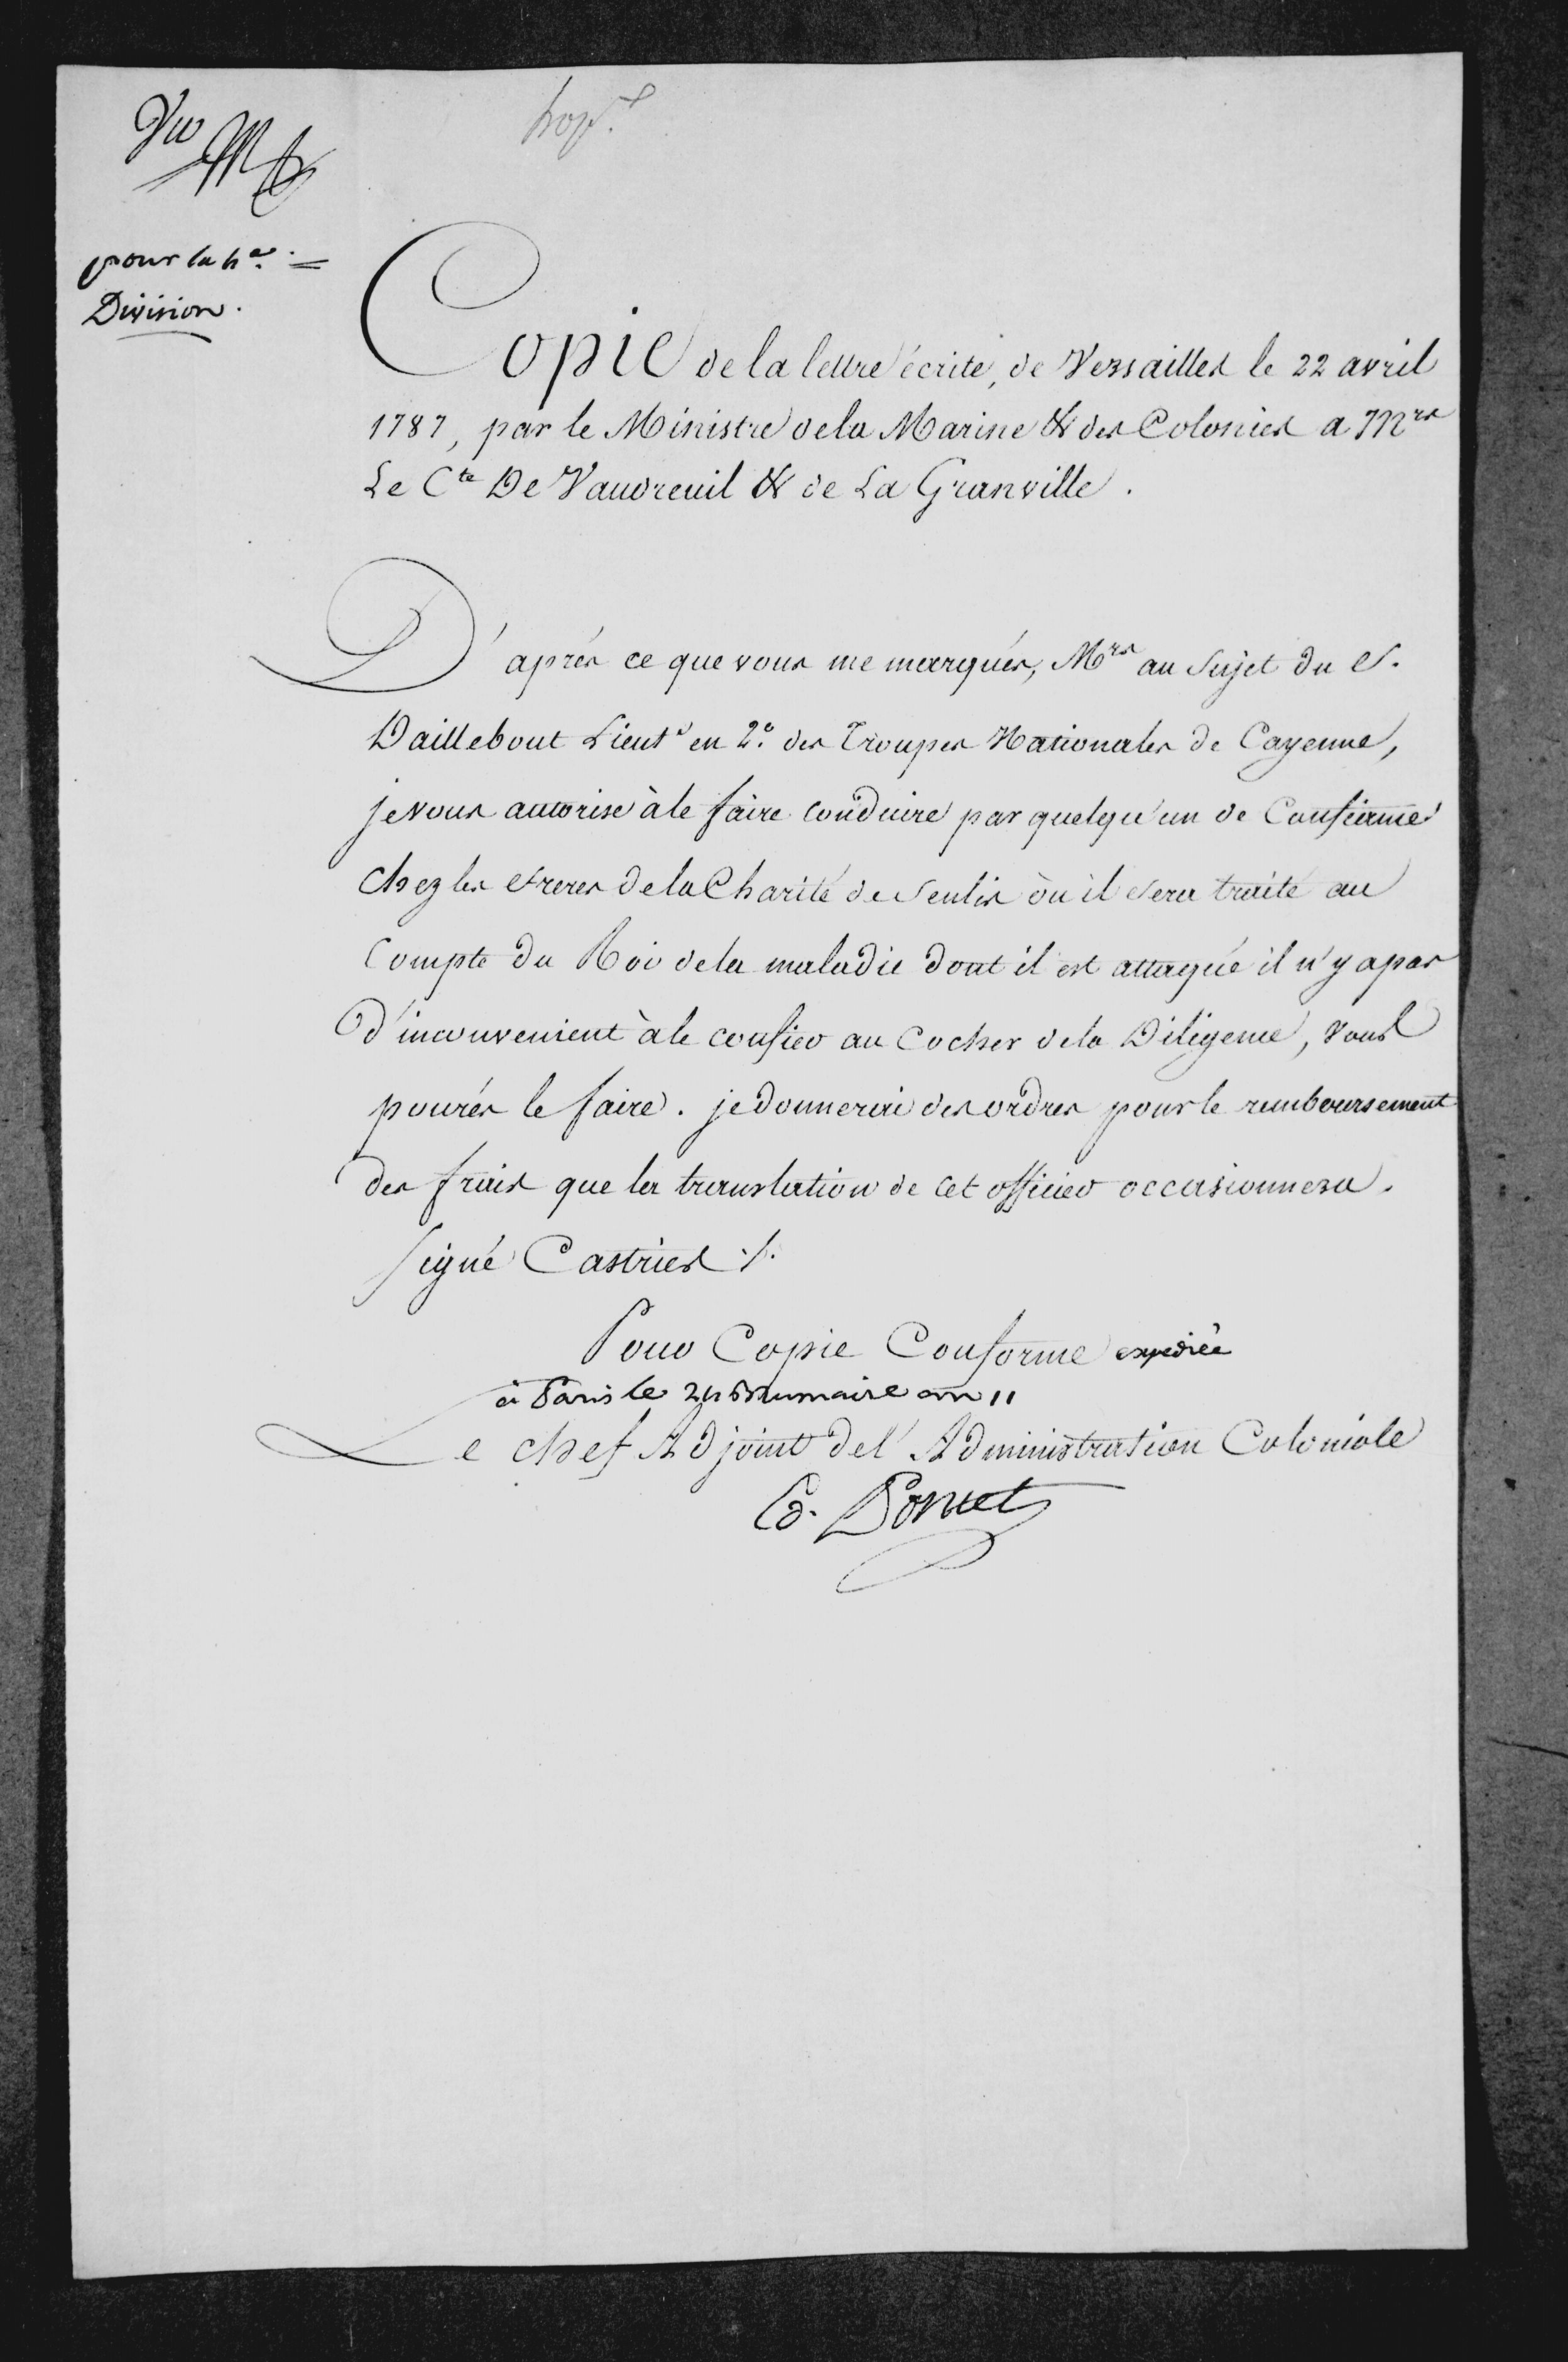 Vu
pour la 4e.
Division.
Copie de la lettre écrite, de Versailles le 22 avril
1787, par le Ministre de la Marine & des Colonies a Mrs
Le Cte De Vaudreuil & de La Granville.
D'après ce que vous me marqués, Mrs au Sujet du S.
Daillebout Lieut en 2e. des Troupes Nationales de Cayenne,
je vous autorise à le faire conduire par quelqu'un de Confiance
chez les freres de la Charité de Senlis où il sera traité au
Compte du Roi de la maladie dont il est attaqué il n'y a pas
d'inconvenient à le confier au Cocher de la Diligence, vous
pourés le faire. je donnerai des ordres pour le remboursement
des frais que la translation de cet officier occasionnera.
Signé Castries
Pour Copie Conforme expédiée
à Paris le 24 Brumaire an 11
Le chef Adjoint de l'Administration Coloniale